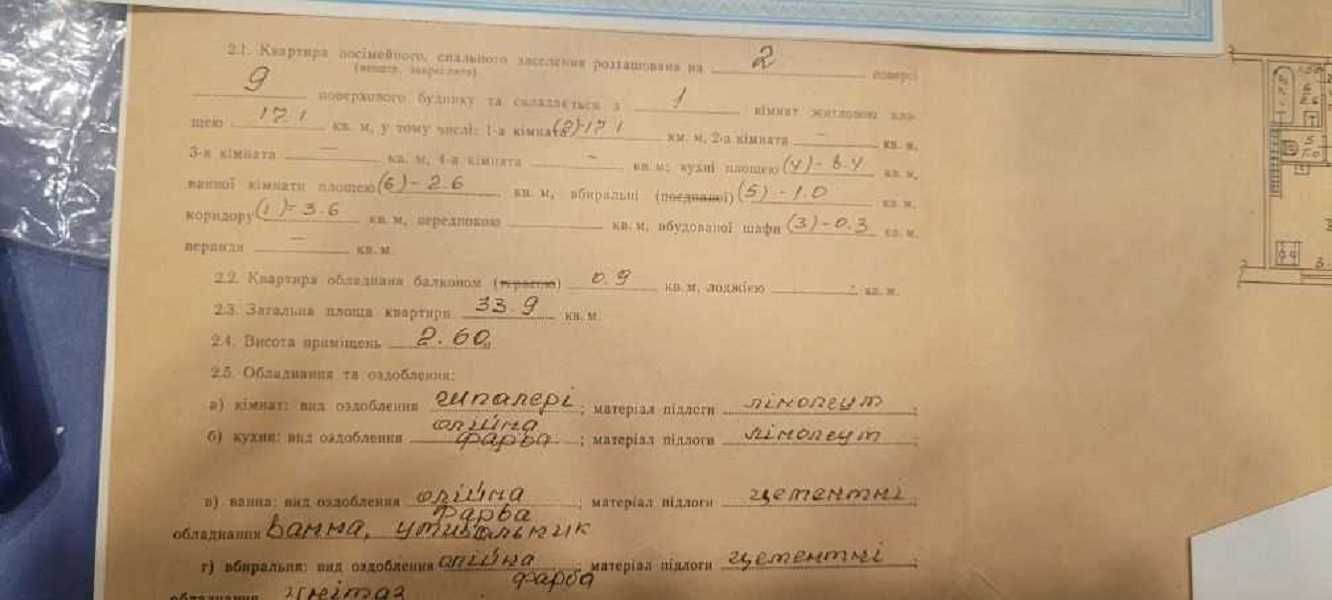 2.1. Квартира посімейного, спального заселення розташована на 2 поверсі
(непотр. закреслити)
9 поверхового будинку та складається з 1 кімнат житловою пло-
щею 17.1 кв. м, у тому числі: 1-а кімната (2)-17.1 км. м, 2-а кімната — кв. м,
3-я кімната — кв. м, 4-а кімната - кв. м; кухні площею (4)-8.4 кв. м,
ванної кімнати площею (6)-2.6 кв. м, вбиральні (поєднаної) (5)-1.0 кв. м,
коридору (1)-3.6 кв. м, передпокою кв. м, вбудованої шафи (3)-0.3 кв. м,
веранди — кв. м.
2.2. Квартира обладнана балконом (терасою) 0.9 кв. м, лоджією - кв. м.
2.3. Загальна площа квартири 33.9 кв. м.
2.4. Висота приміщень 2.60 м
2.5. Обладнання та оздоблення:
а) кімнат: вид оздоблення шпалері; матеріал підлоги лінолеум;
б) кухня: вид оздоблення олійна фарба; матеріал підлоги лінолеум;
в) ванна: вид оздоблення олійна фарба; матеріал підлоги цементні
обладнання ванна, умивальник
г) вбиральня: вид оздоблення олійна фарба; матеріал підлоги цементні;
обладнання унітаз